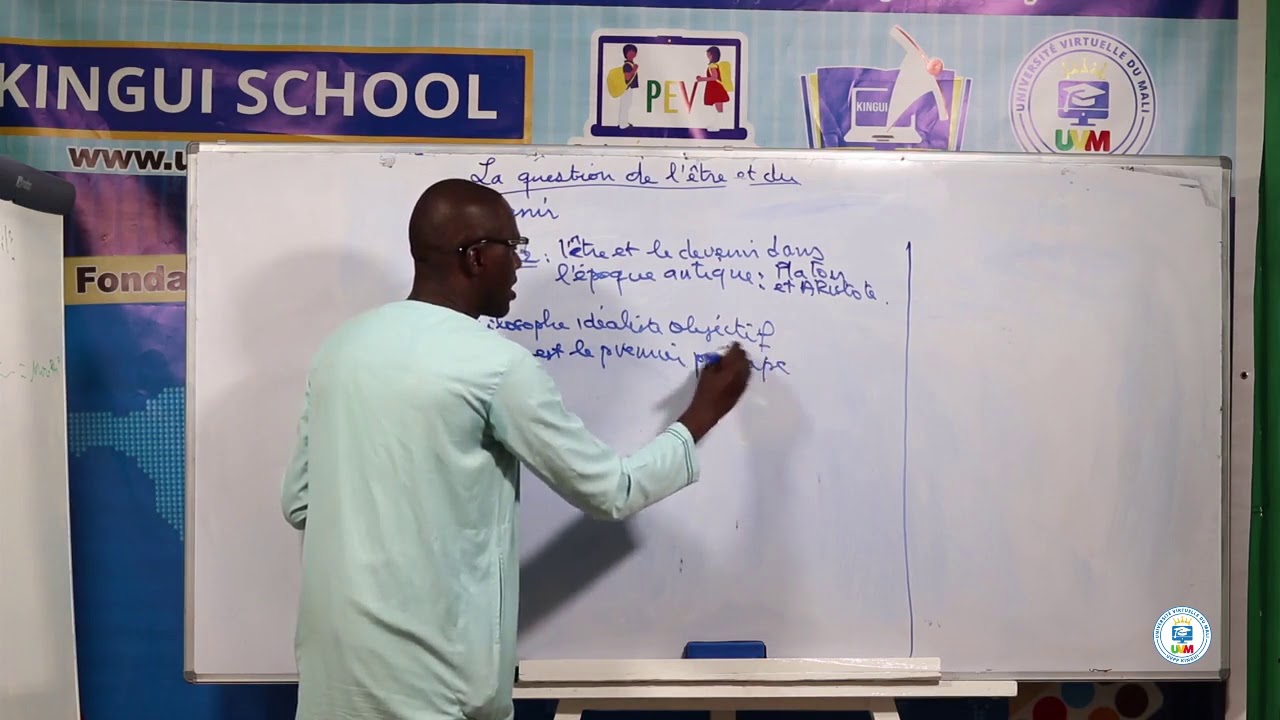 KINGUI SCHOOL
www.u
Fonda
PEV
KINGUI
UNIVERSITÉ VIRTUELLE DU MALI
UVM
La question de l'être et du
enir
2 : l'être et le devenir dans
l'époque antique : Platon
et ARistote.
losophe idéaliste objectif
est le premier
UNIVERSITÉ VIRTUELLE DU MALI
UVM
UVPP KINGUI